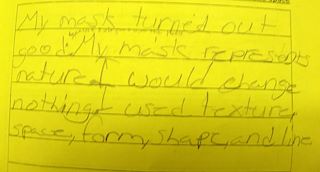 My mask turned out
good. My mask represents
nature I would change
nothing I used texture,
space, form, shape, and line